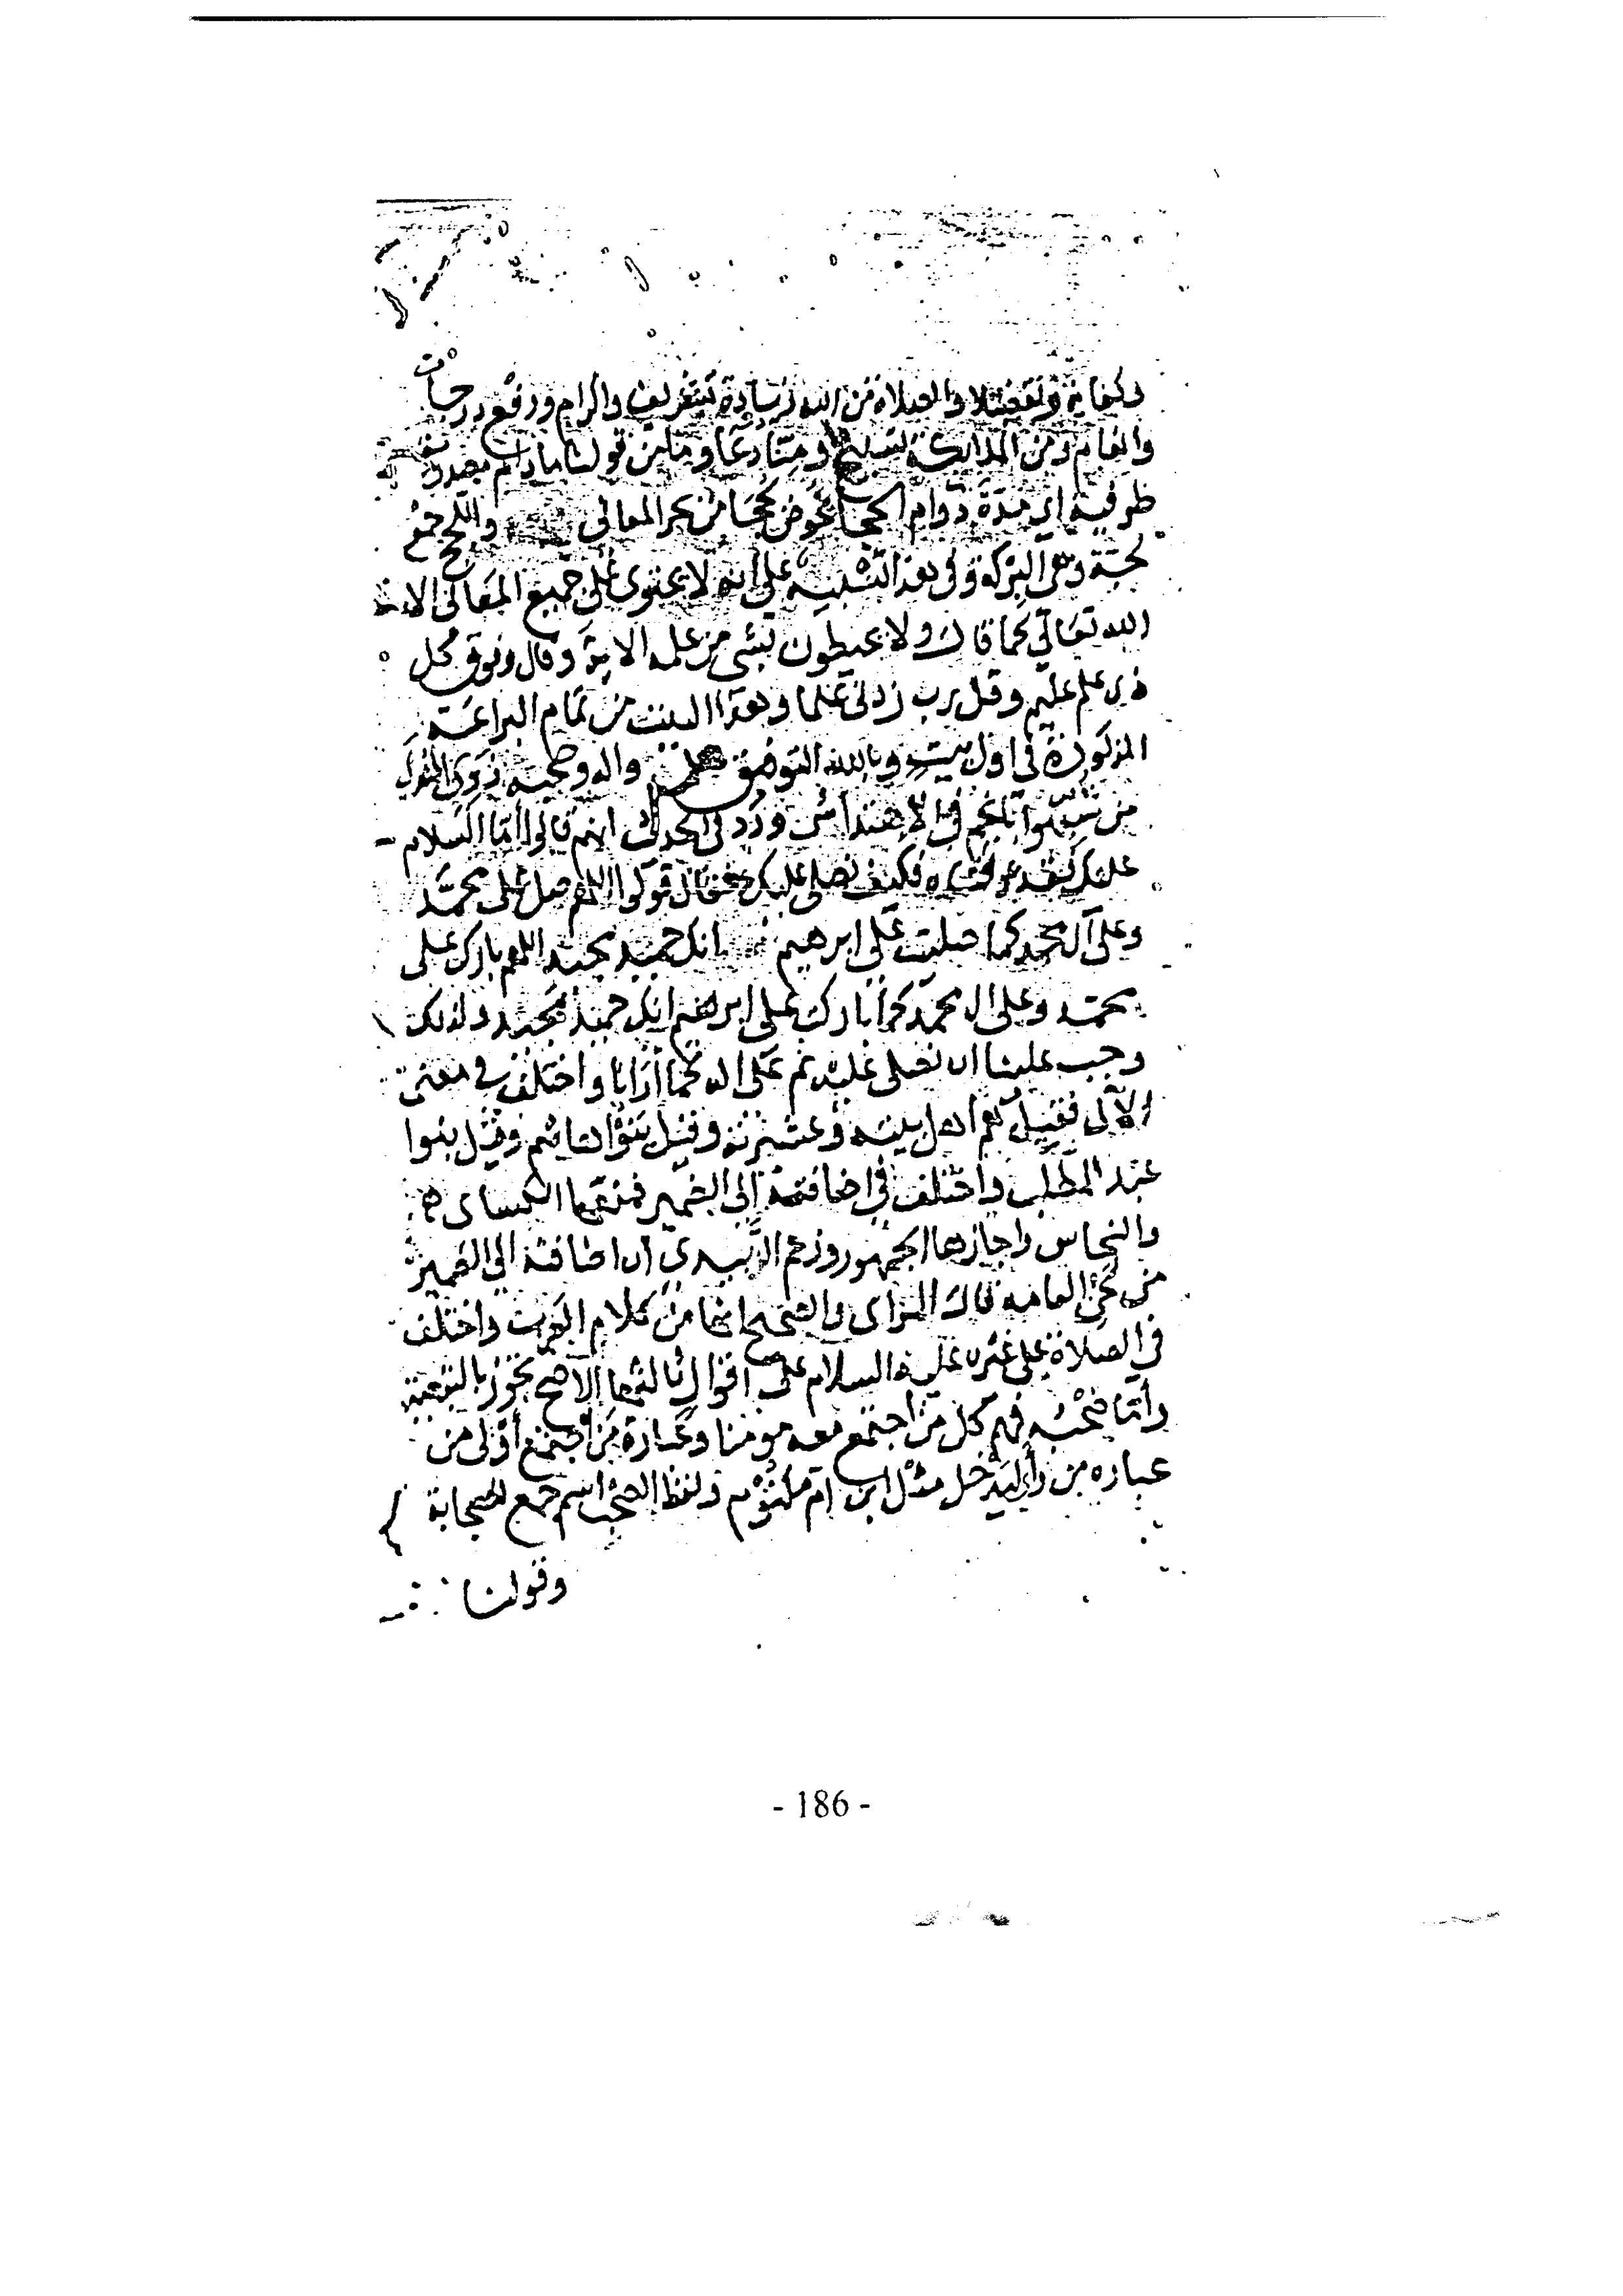 وكفاية وتفضيلا والصلاة من الله زيادة تشريف واكرام ورفع درجات
وانعام ومن الملائكة تسبيح ومنا دعا وما من قولنا مادام مصدرية
ظرفية اي مدة دوام الحجا يخوض لججا من بحر المعاني واللجج جمع
لجة وهي البركة وفي هذا تنبيه على انه لا يحتوي على جميع المعاني الا
الله تعالى كما قال ولا يحيطون بشي من علمه الاية وقال وفوق كل
ذي علم عليم وقل رب زدني علما وهذا البيت من تمام البراعة
المذكورة في اول بيت وبالله التوفيق واله وصحبه ذوي الهدى
من شبهوا بانجم في الاهتداش ورد في الحديث انهم قالوا اما السلام
عليك فقد عرفناه فكيف نصلي عليك فقال قولوا اللهم صل على محمد
وعلى آل محمد كما صليت على ابرهيم انك حميد مجيد اللهم بارك على
محمد وعلى ال محمد كما باركت على ابرهيم انك حميد مجيد ولذلك
وجب علينا ان نصلي عليه ثم على اله كما ارانا واختلف في معنى
الآل فقيل هم اهل بيته وعشيرته وقيل بنوا هاشم وقيل بنوا
عبد المطلب واختلف في اضافته الى الضمير فمنعها الكساي
والنحاس واجازها الجمهور وزعم الزبيدي ان اضافته الى الضمير
من لحن العامه قال المرادي والصحيح انها من كلام العرب واختلف
في الصلاة على غيره عليه السلام على اقوال ثالثها الاصح تجوز بالتبعية
وأما صحبه فهم كل من اجتمع معه مومنا وعبارة من اجتمع أولى من
عباره من رأى ليدخل مثل ابن ام مكتوم ولفظ الصحب اسم جمع لصحابة
وقولنا
- 186 -